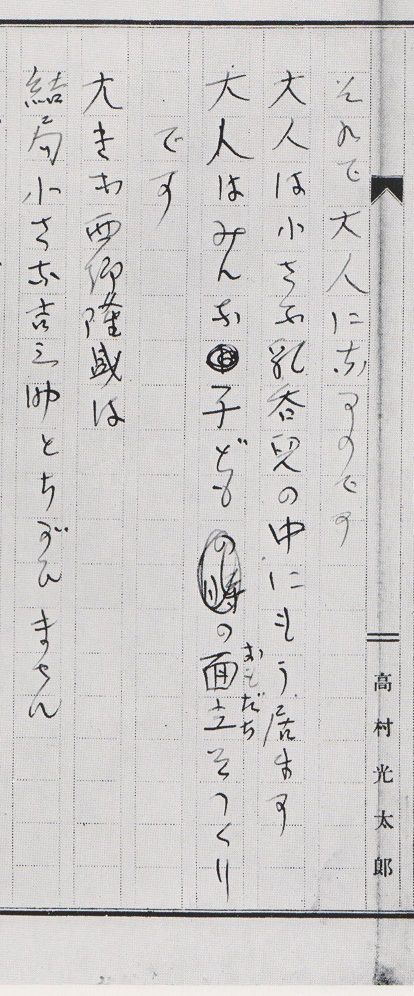 高村光太郎
それで大人になるのです
大人は小さな乳呑児の中にもう居ます
大人はみんな子どもの面立そつくり
おもだち
です
大きな西郷隆盛は
結局小さな吉之助とちがひません